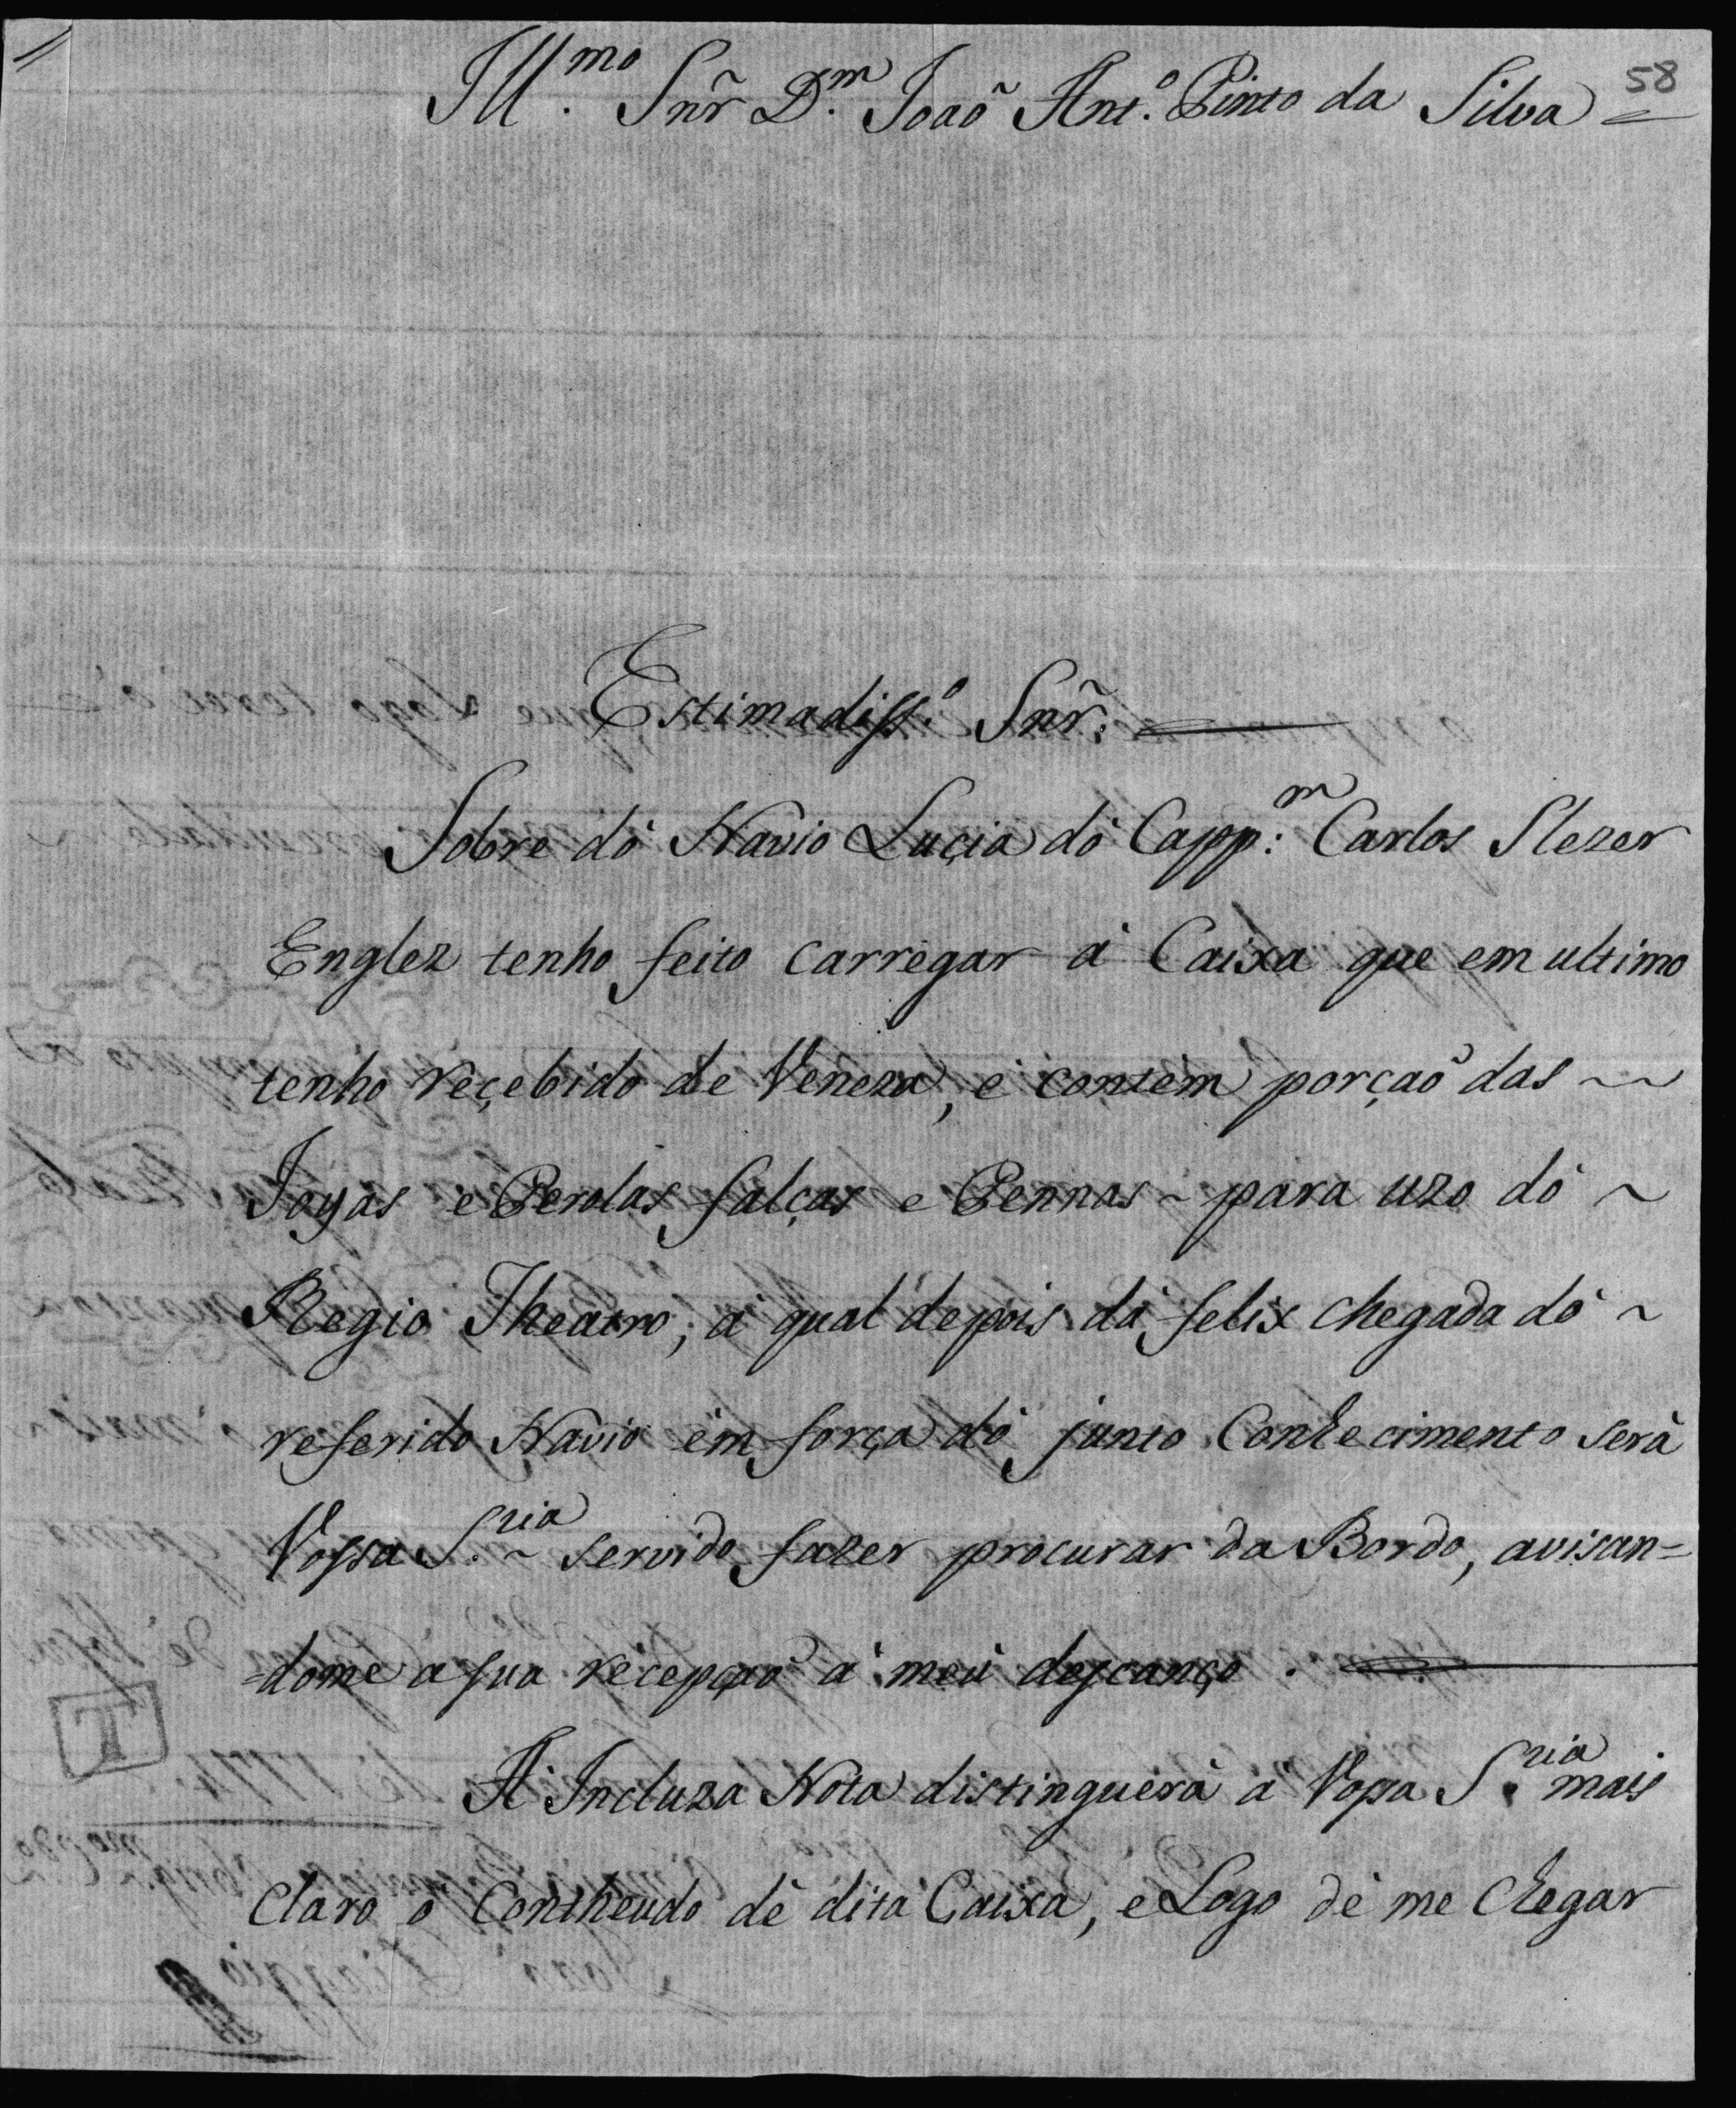 58
Ill.mo Snr̃ D.m Joaõ Ant.o Pinto da Silva =
Estimadiss.o Snr̃:
Sobre dò Navio Luçia dò Capp:m Carlos Slezer
Englez tenho feito carregar à Caixa que em ultimo
tenho reçebido de Veneza, è contèm porçaõ das ~~
Joyas e Perolas falças e Pennas ~ para uzo dò ~
Regio Theatro; à qual depois dà felix chegada dò ~
referido Navio èm força dò junto Conhecimento serà
Vossa S.ria ~ servido fazer procurar da Bordo, avisan=
=dome a sua recepçaò à meù descanço .
A' Incluza Nota distinguerà à Vossa S.ria mais
claro o Contheudo dè dita Caixa, e Logo dè me chegar
T